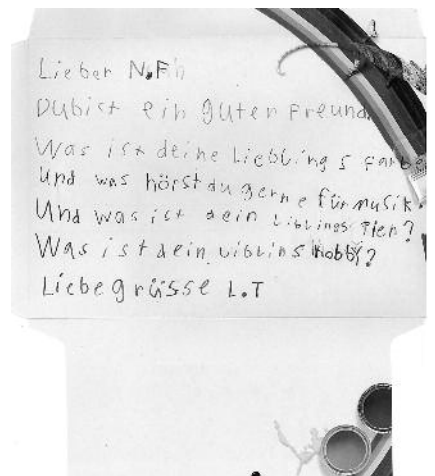 Lieber N.F
Du bist ein guter Freund
Was ist deine Lieblings farbe
Und was hörst du gerne für musik.
Und was ist dein Liblings Tier?
Was ist dein viblins hobby?
Liebe grüsse L.T